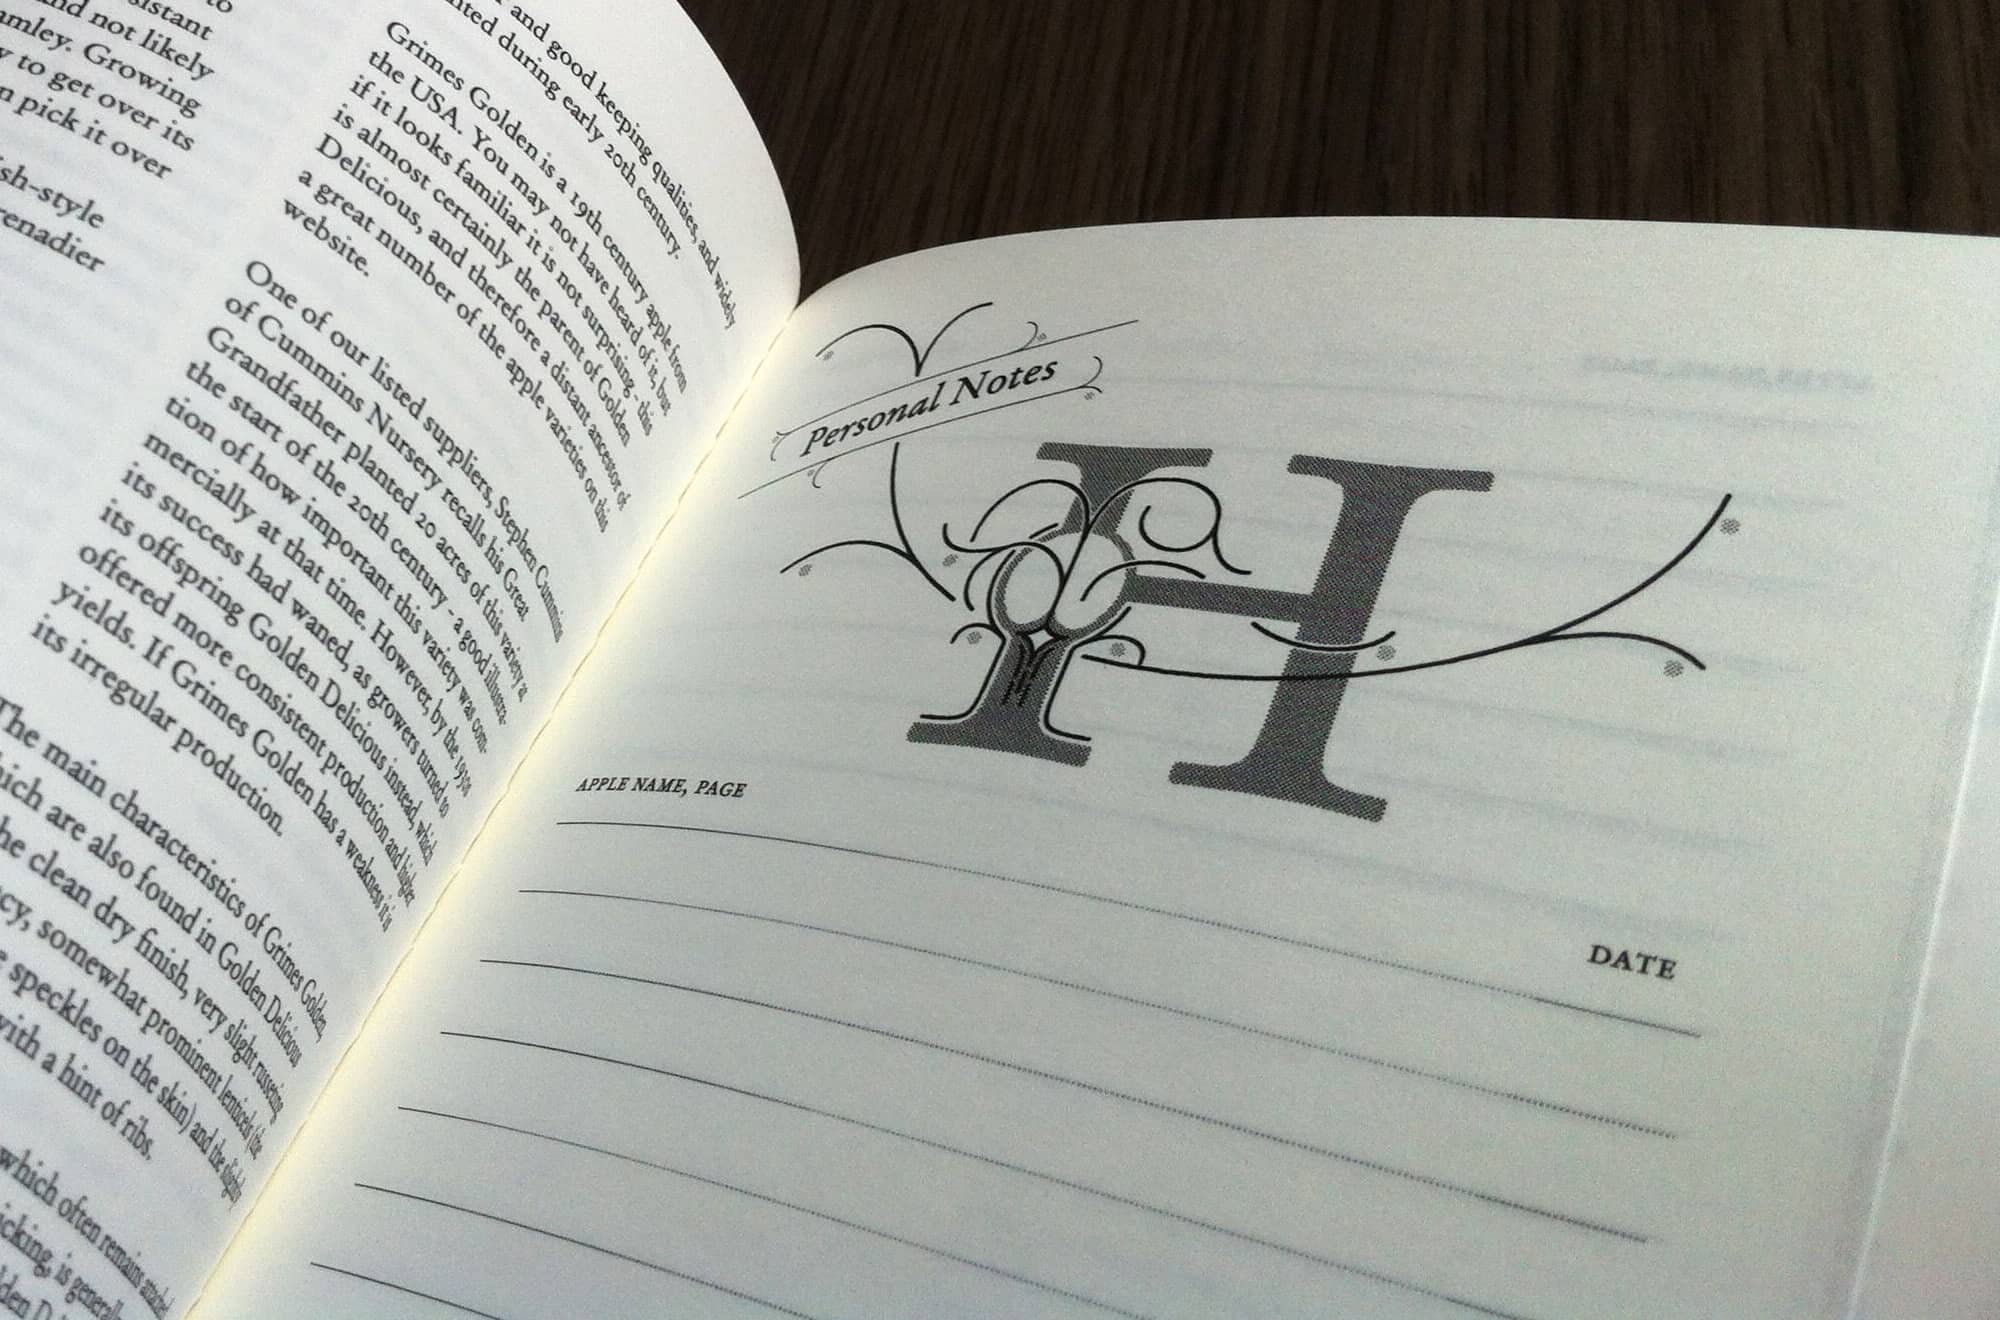 to
sistant
and not likely
mley. Growing
to get over its
pick it over
sh-style
renadier
and good keeping qualities, and widely
nted during early 20th century.
Grimes Golden is a 19th century apple from
the USA. You may not have heard of it, but
if it looks familiar it is not surprising - this
is almost certainly the parent of Golden
Delicious, and therefore a distant ancestor of
a great number of the apple varieties on this
website.
One of our listed suppliers, Stephen Cummins
of Cummins Nursery recalls his Great
Grandfather planted 20 acres of this variety at
the start of the 20th century - a good illustra-
tion of how important this variety was com-
mercially at that time. However, by the 1930s
its success had waned, as growers turned to
its offspring Golden Delicious instead, which
offered more consistent production and higher
yields. If Grimes Golden has a weakness it is
its irregular production.
The main characteristics of Grimes Golden,
hich are also found in Golden Delicious
he clean dry finish, very slight russeting
cy, somewhat prominent lenticels (the
speckles on the skin) and the slightly
with a hint of ribs.
which often remains attached
icking, is generally
lden D
Personal Notes
H
APPLE NAME, PAGE
DATE